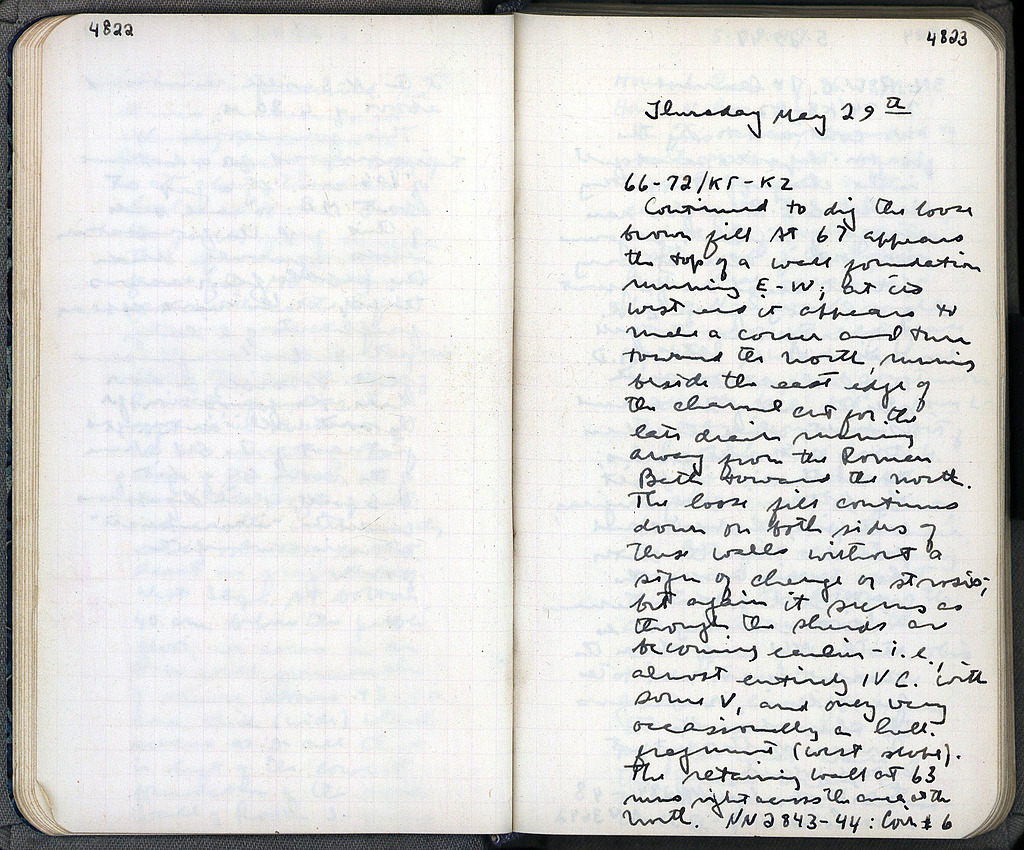 4822
4823
Thursday May 29th
66-72/KΓ-KZ
Continued to dig the loose
brown fill. At 67 appears
the top of a wall foundation
running E-W; at its
west end it appears to
make a corner and turn
toward the north, running
beside the east edge of
the channel cut for the
late drain running
away from the Roman
Bath toward the north.
The loose fill continues
down on both sides of
these walls without a
sign of change or strosis;
but again it seems as
though the sherds are
becoming earlier - i.e.,
almost entirely IV C. with
some V, and only very
occassionally a hell.
fragment (west slope).
The retaining wall at 63
runs right across the area at the
north. NN 2843-44: Coin #6